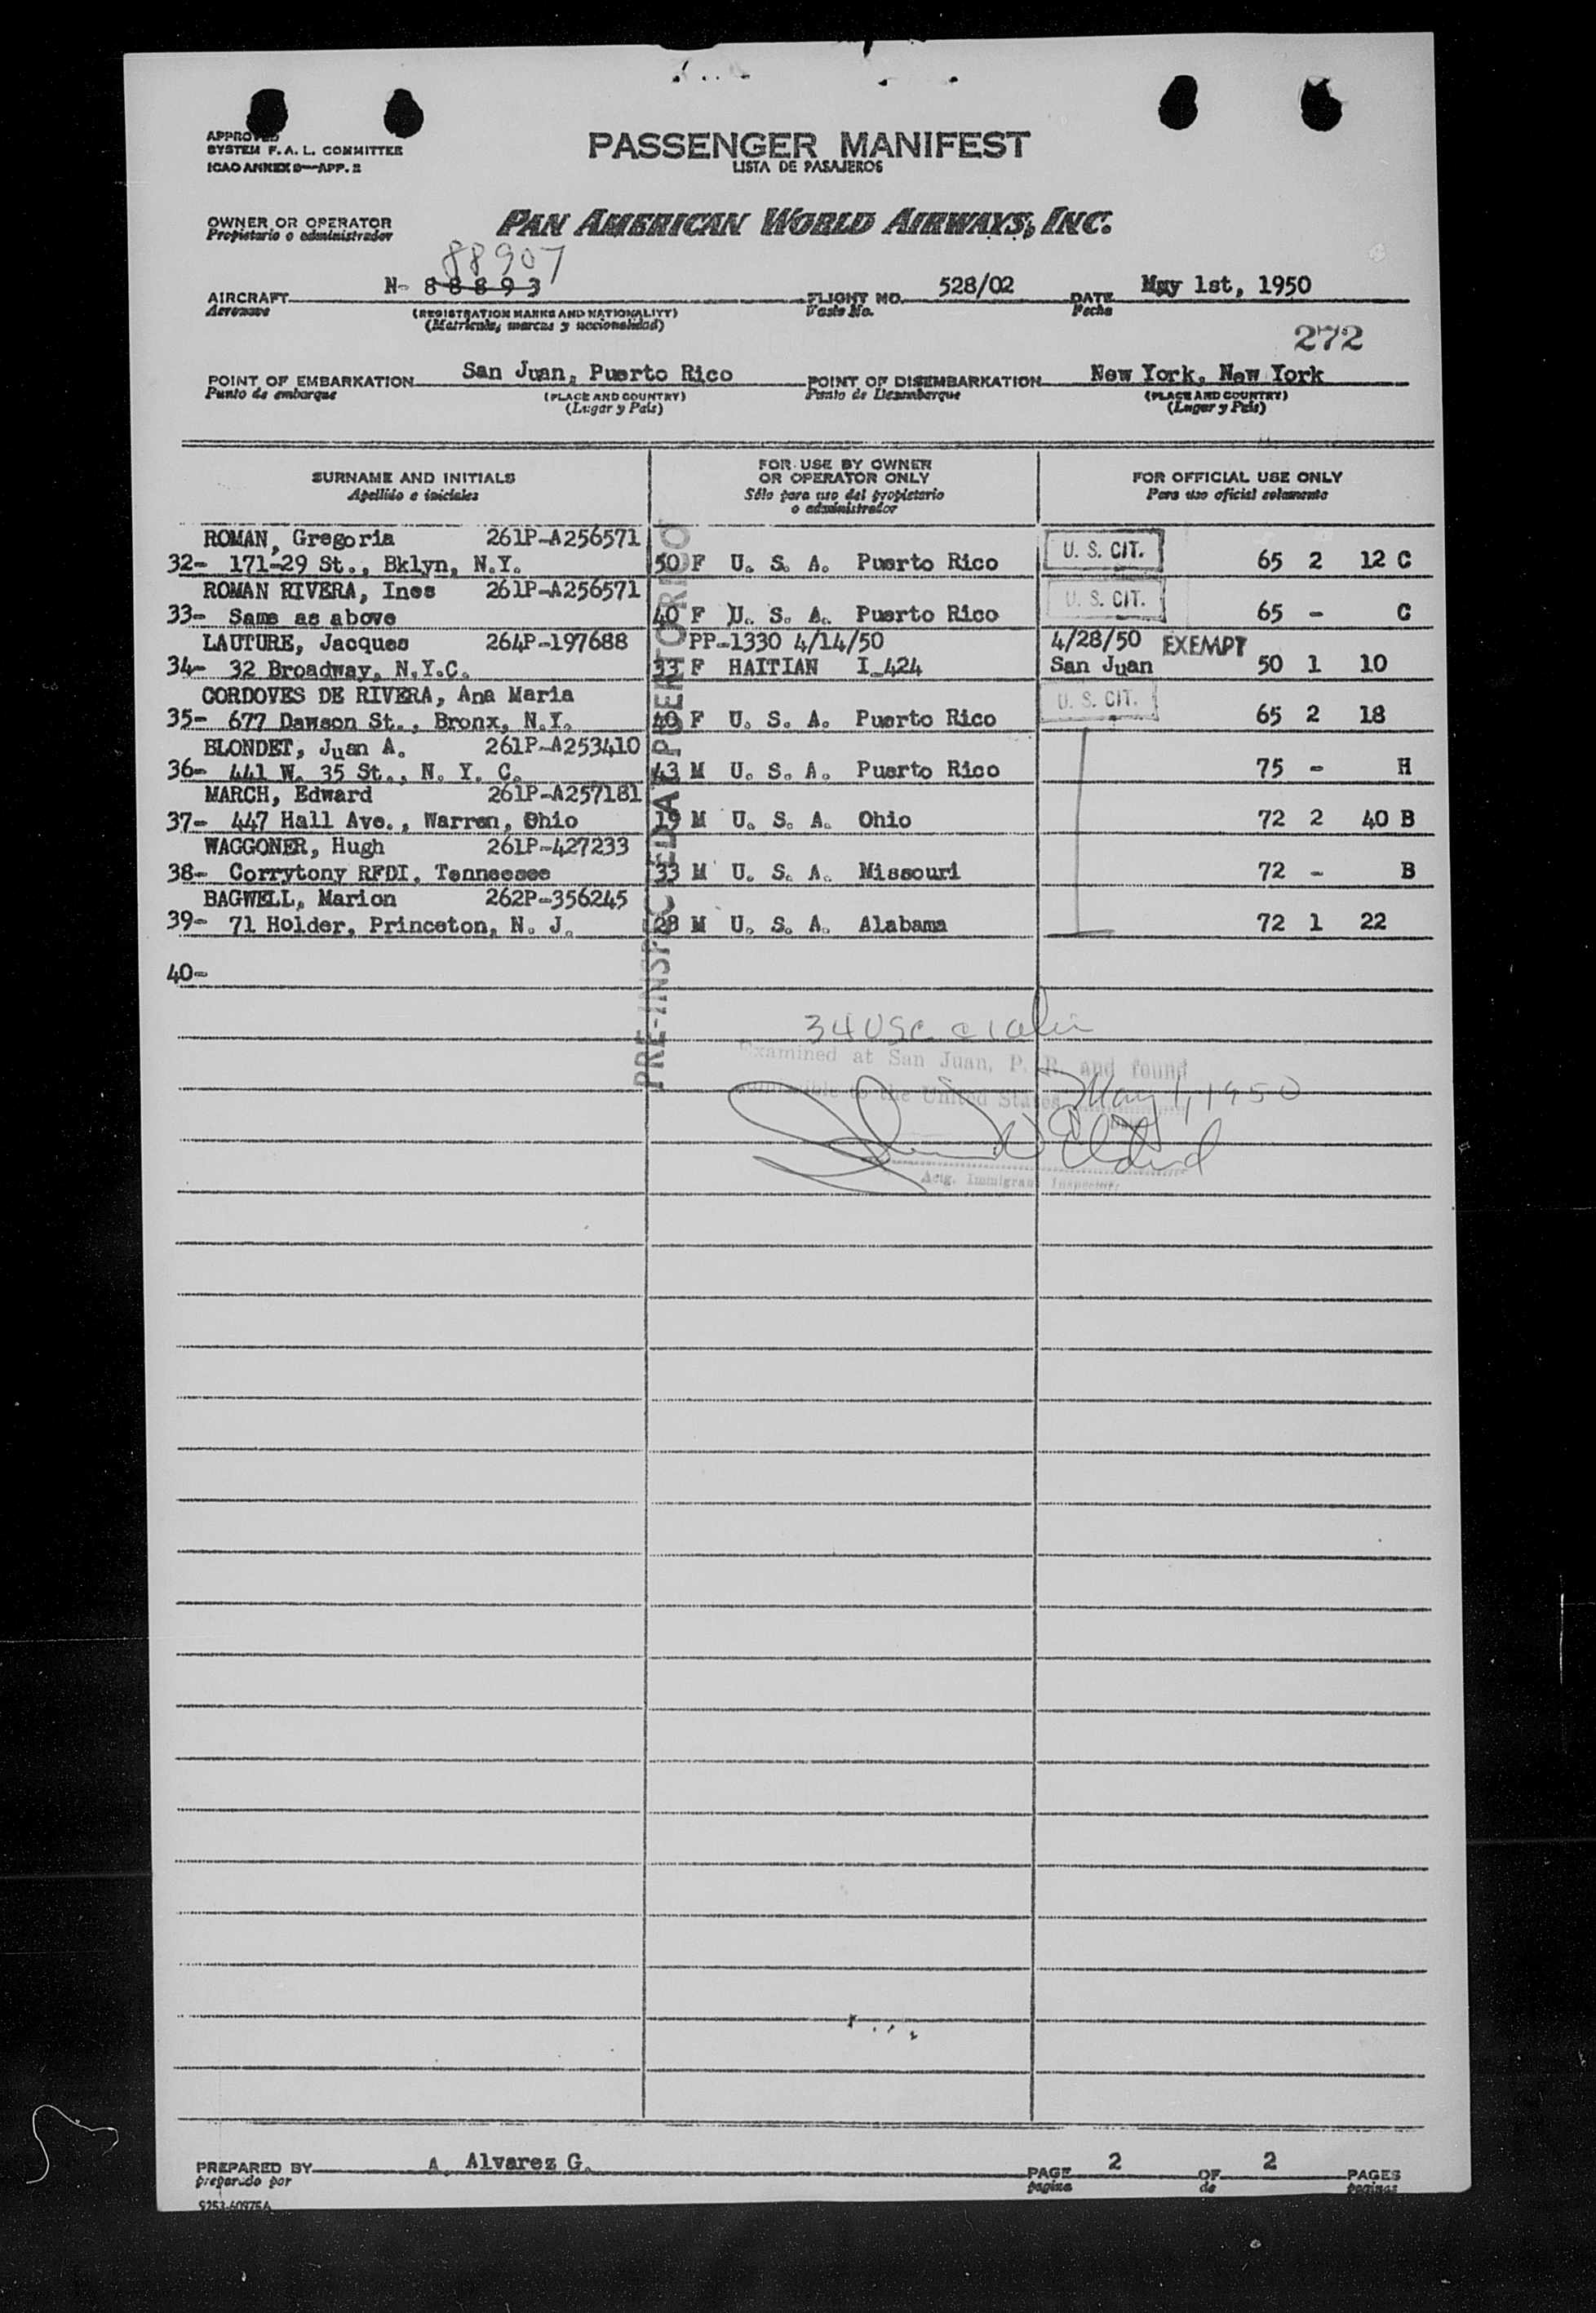 APPROVED
SYSTEM F. A. L. COMMITTEE
ICAO ANNEX 9—APP. 2
PASSENGER MANIFEST
LISTA DE PASAJEROS
OWNER OR OPERATOR
Propietario o administrador
PAN AMERICAN WORLD AIRWAYS, INC.
88907
AIRCRAFT N- 88893 FLIGHT NO. 528/02 DATE May 1st, 1950
Aeronave (REGISTRATION MARKS AND NATIONALITY) Vuelo No. Fecha
(Matricula, marcas y nacionalidad)
272
POINT OF EMBARKATION San Juan, Puerto Rico POINT OF DISEMBARKATION New York, New York
Punto de embarque (PLACE AND COUNTRY) Punto de Desembarque (PLACE AND COUNTRY)
(Lugar y País) (Lugar y País)
SURNAME AND INITIALS FOR USE BY OWNER OR OPERATOR ONLY FOR OFFICIAL USE ONLY
Apellido e iniciales Sólo para uso del propietario o administrador Para uso oficial solamente
ROMAN, Gregoria 261P-A256571
32- 171-29 St., Bklyn, N.Y. 50 F U. S. A. Puerto Rico U. S. CIT. 65 2 12 C
ROMAN RIVERA, Ines 261P-A256571
33- Same as above 40 F U. S. A. Puerto Rico U. S. CIT. 65 - C
LAUTURE, Jacques 264P-197688 PP-1330 4/14/50 4/28/50 EXEMPT
34- 32 Broadway, N.Y.C. 33 F HAITIAN I-424 San Juan 50 1 10
CORDOVES DE RIVERA, Ana Maria
35- 677 Dawson St., Bronx, N.Y. 40 F U. S. A. Puerto Rico U. S. CIT. 65 2 18
BLONDET, Juan A. 261P-A253410
36- 441 W. 35 St., N. Y. C. 43 M U. S. A. Puerto Rico 75 - H
MARCH, Edward 261P-A257181
37- 447 Hall Ave., Warren, Ohio 19 M U. S. A. Ohio 72 2 40 B
WAGGONER, Hugh 261P-427233
38- Corrytony RFDI, Tennessee 33 M U. S. A. Missouri 72 - B
BAGWELL, Marion 262P-356245
39- 71 Holder, Princeton, N. J. 28 M U. S. A. Alabama 72 1 22
40-
PRE-INSPECTED AT PUERTO RICO
34 USC
Examined at San Juan, P. R. and found
admissible to the United States May 1, 1950
Actg. Immigrant Inspector
PREPARED BY A. Alvarez G. PAGE 2 OF 2 PAGES
preparado por página de páginas
9253-60975A